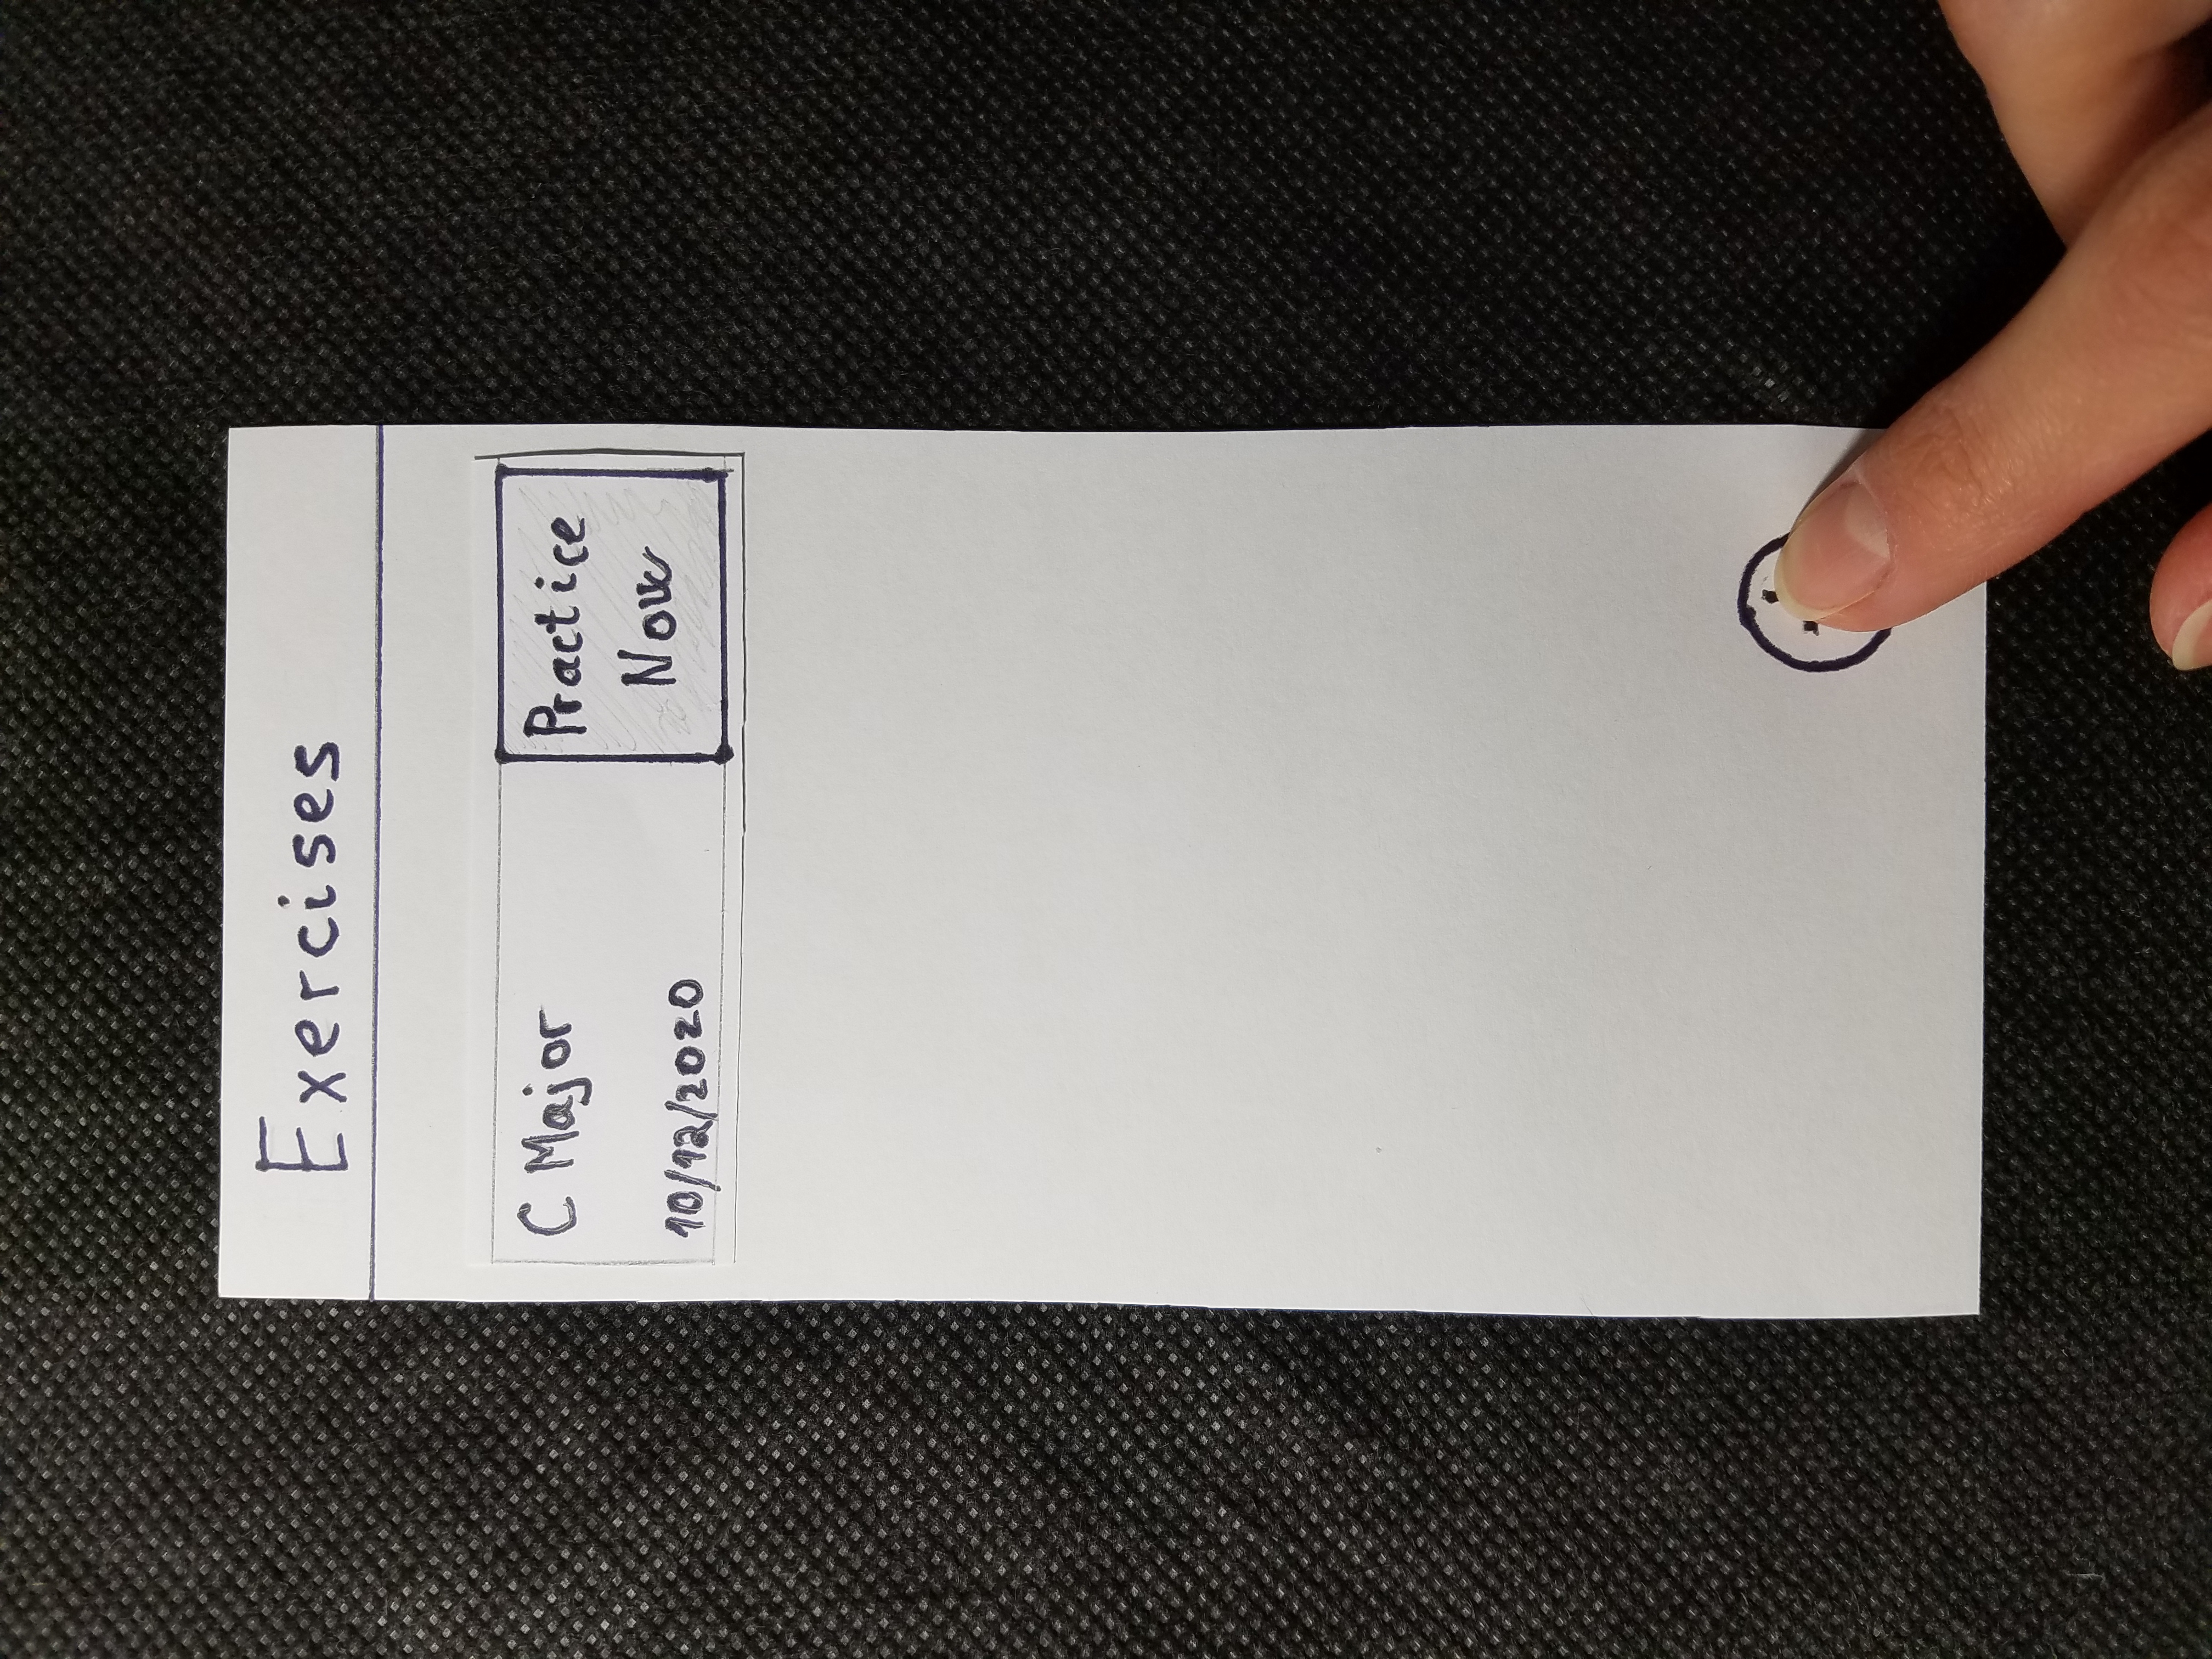 Exercises
C Major
10/12/2020
Practice
Now